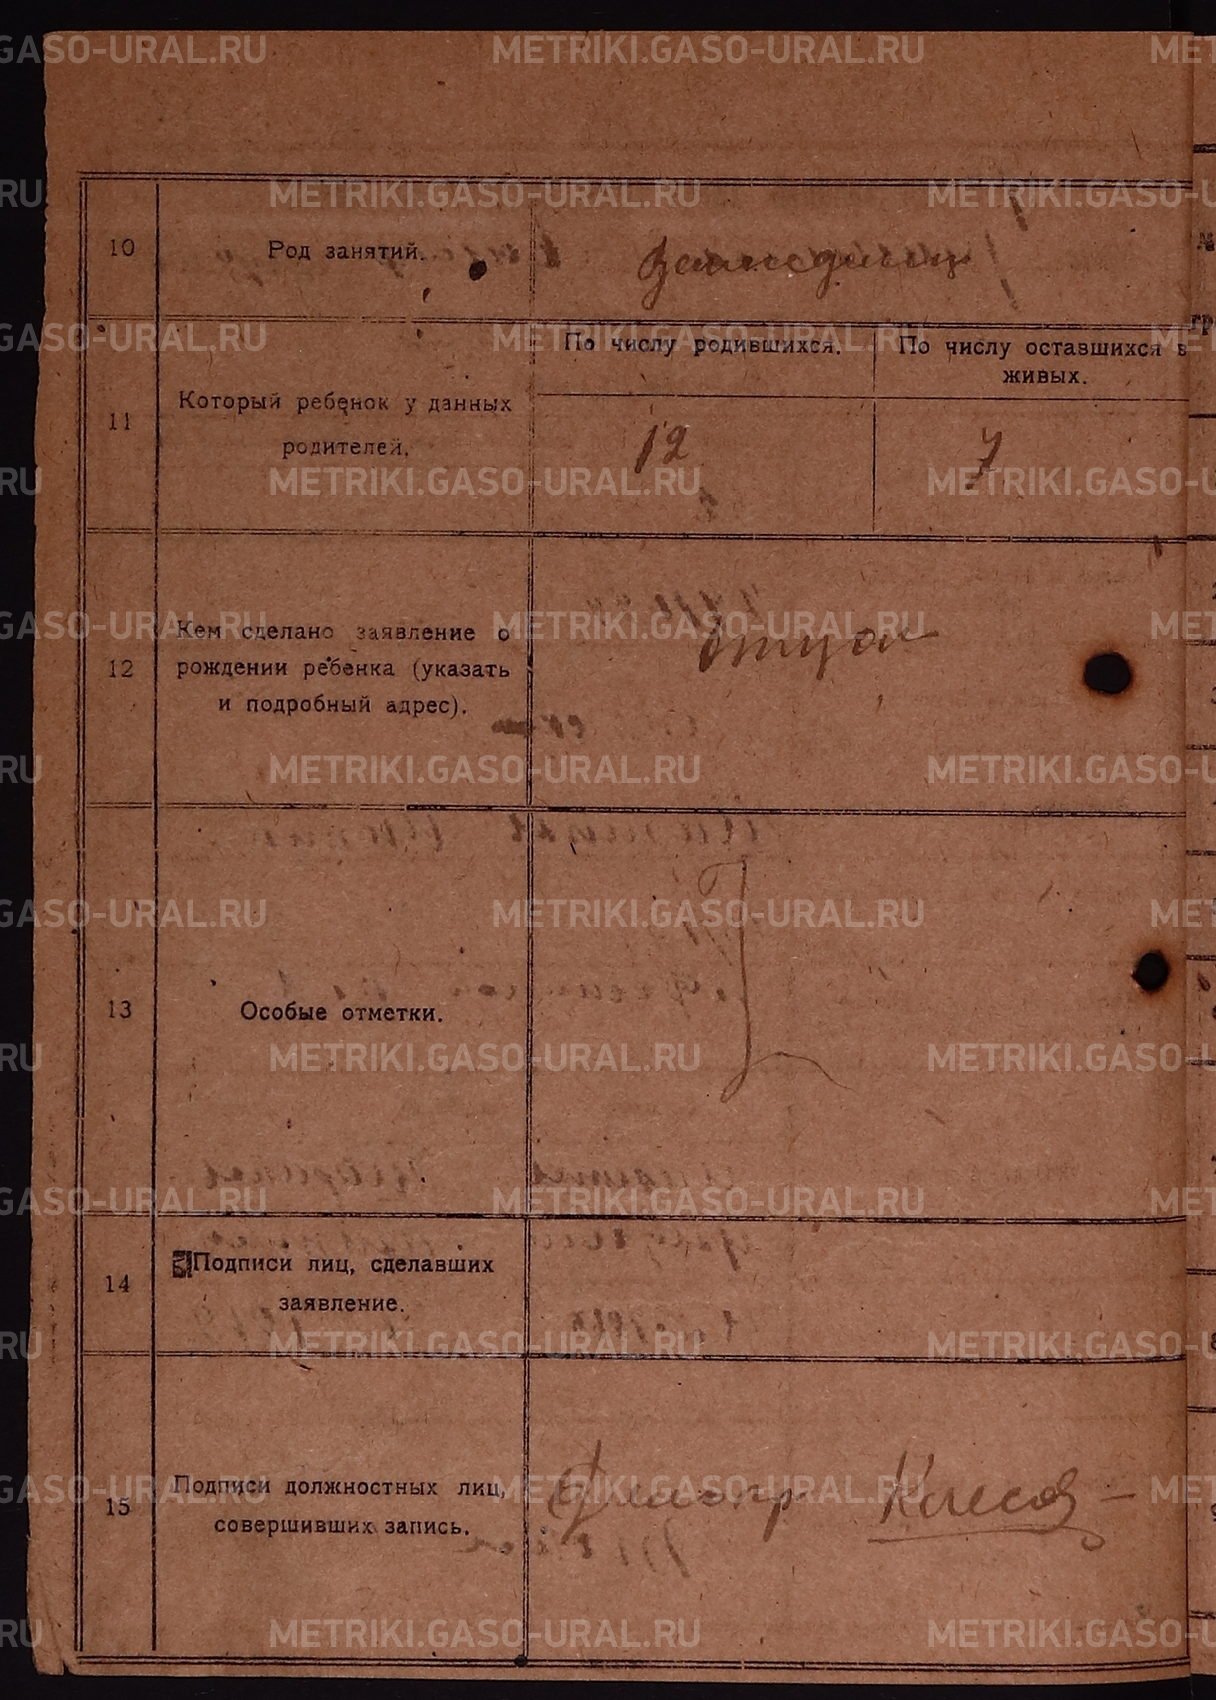 METRIKI.GASO-URAL.RU
10
Род занятий.
11
Который ребенок у данных
родителей.
По числу родившихся.
По числу оставшихся в
живых.
12
7
12
Кем сделано заявление о
рождении ребенка (указать
и подробный адрес).
отцом
13
Особые отметки.
14
Подписи лиц, сделавших
заявление.
15
Подписи должностных лиц,
совершивших запись.